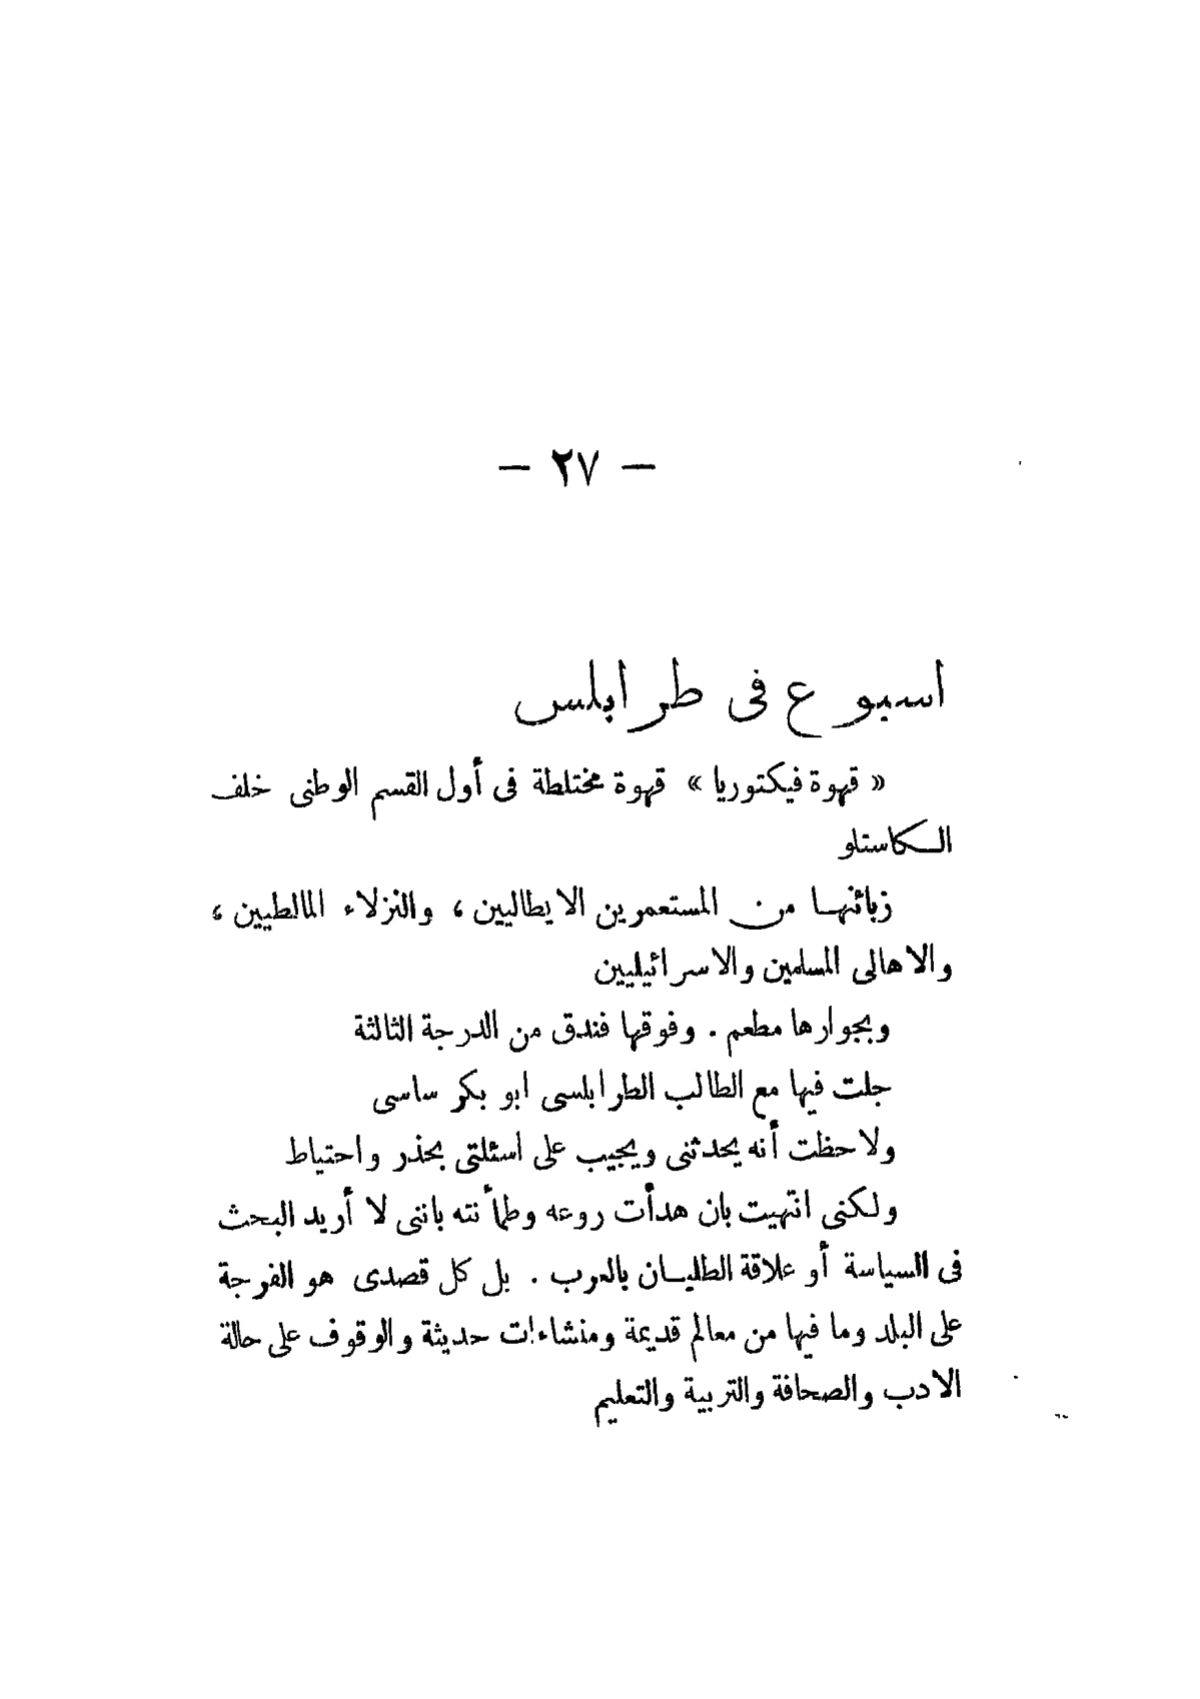 — ٢٧ —
اسبوع فى طرابلس
« قهوة فيكتوريا » قهوة مختلطة فى أول القسم الوطنى خلف
الكاستلو
زبائنها من المستعمرين الايطاليين ، والنزلاء المالطيين ،
والاهالى المسلمين والاسرائيليين
وبجوارها مطعم . وفوقها فندق من الدرجة الثالثة
جلت فيها مع الطالب الطرابلسى ابو بكر ساسى
ولاحظت أنه يحدثنى ويجيب على اسئلتى بحذر واحتياط
ولكنى انتهيت بان هدأت روعه وطمأنته باننى لا أريد البحث
فى السياسة أو علاقة الطليان بالعرب . بل كل قصدى هو الفرجة
على البلد وما فيها من معالم قديمة ومنشاءات حديثة والوقوف على حالة
الادب والصحافة والتربية والتعليم